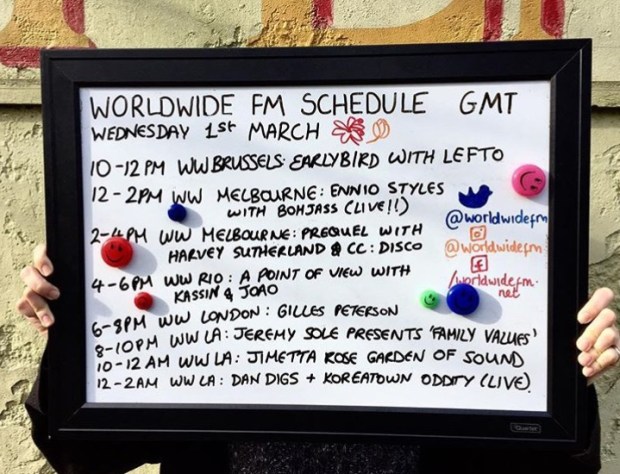 WORLDWIDE FM SCHEDULE GMT
WEDNESDAY 1st MARCH
10-12PM WW BRUSSELS: EARLYBIRD WITH LEFTO
12-2PM WW MELBOURNE: ENNIO STYLES
WITH BOHJASS (LIVE!!)
2-4PM WW MELBOURNE: PREQUEL WITH
HARVEY SUTHERLAND & CC: DISCO
4-6PM WW RIO: A POINT OF VIEW WITH
KASSIN & JOAO
6-8PM WW LONDON: GILLES PETERSON
8-10PM WW LA: JEREMY SOLE PRESENTS 'FAMILY VALUES'
10-12AM WW LA: JIMETTA ROSE GARDEN OF SOUND
12-2AM WW LA: DAN DIGS + KOREATOWN ODDITY (LIVE).
@worldwidefm
@worldwidefm
f
/worldwidefm.
net
Quartet